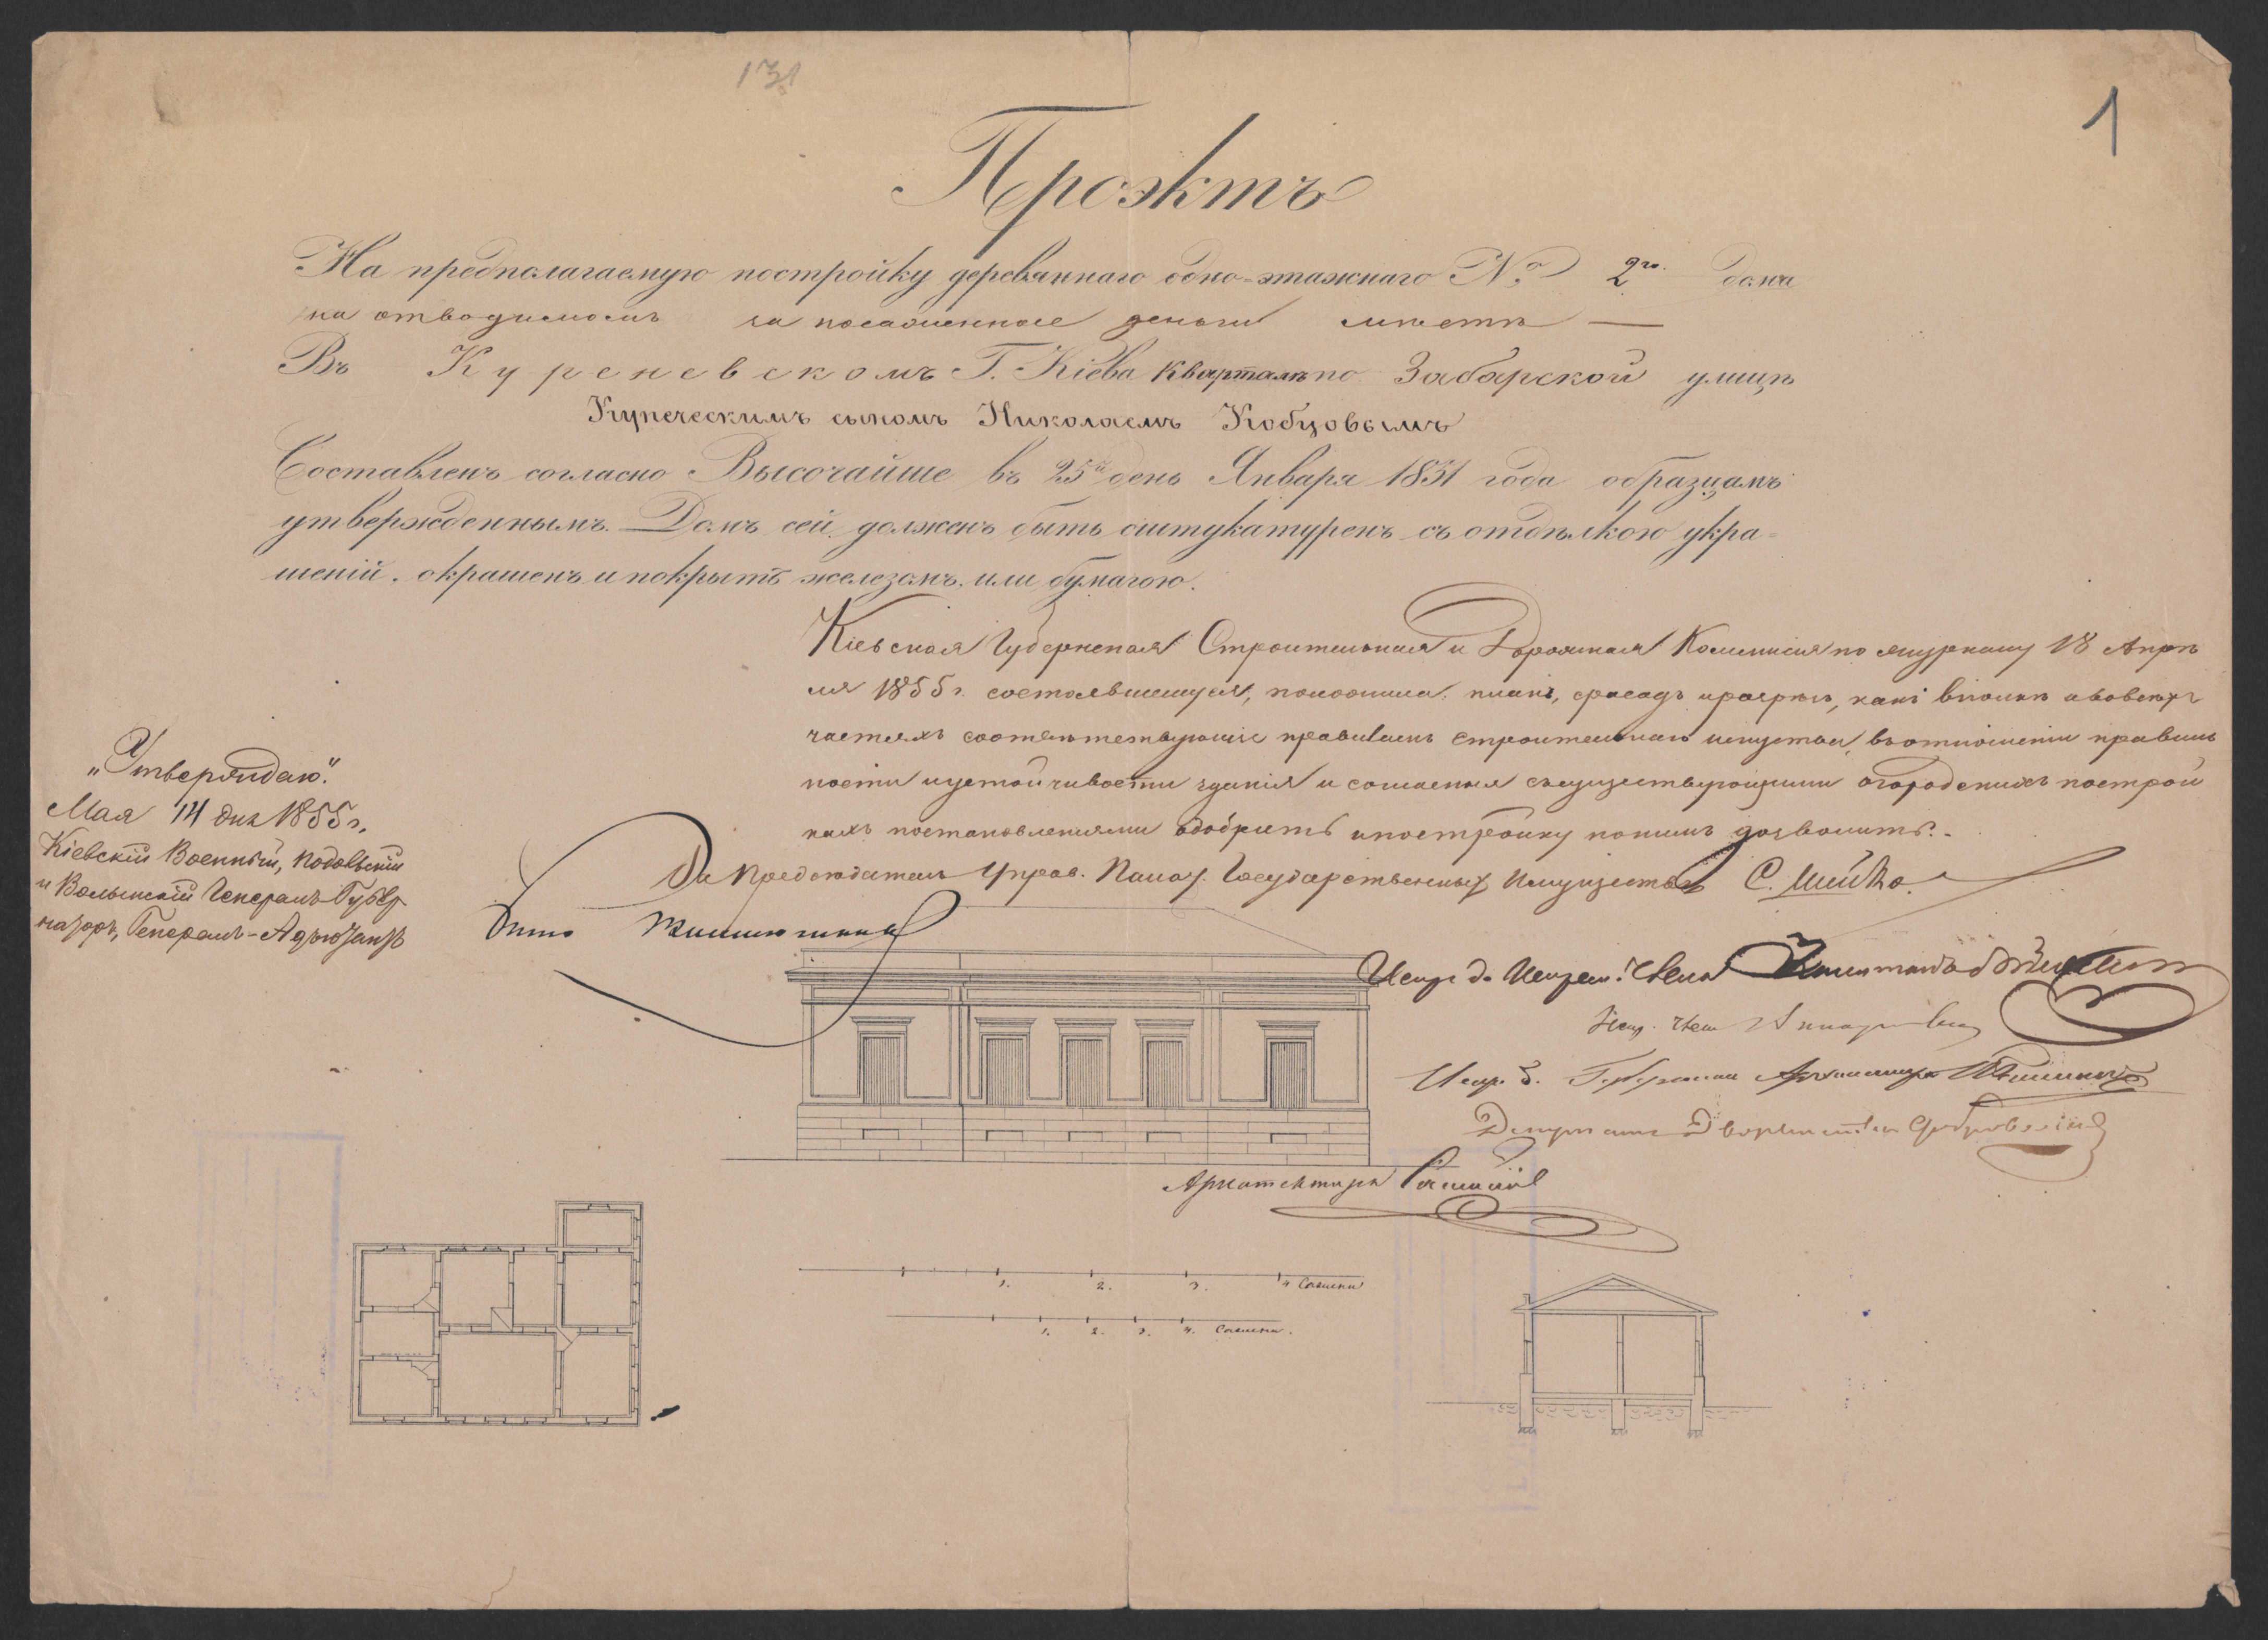 131
1
Проэктъ
На предполагаемую постройку деревяннаго одно-этажнаго № 2го. дома
на отводимомъ за посаженное деньги мѣстѣ —
Въ Куреневскомъ Г. Кіева кварталѣ по Забарской улицѣ
Купеческимъ сыномъ Николаемъ Кобцовымъ
Составленъ согласно Высочайше въ 25й день Января 1831 года образцамъ
утвержденнымъ. Домъ сей должень быть оштукатуренъ съ отдѣлкою укра-
шеній, окрашенъ и покрытъ железомъ, или бумагою.
Кіевская Губернская Строительная и Дорожная Коммисія по журналу 18 Апрѣ
ля 1855 г. состоявшемуся, положила: планъ, фасадъ и разрѣзъ, какъ вполнѣ и во всѣхъ
частяхъ соотвѣтствующіе правиламъ строительнаго искуства, въ отношеніи правиль
ности и устойчивости зданія и согласныя съ существующими о городскихъ построй
кахъ постановленіями одобрить и постройку по нимъ дозволить.-
„Утверждаю".
Мая 14 дня 1855 г.
Кіевскій Военный, Подольскій
и Волынскій Генералъ Губер
наторъ, Генералъ-Адъютантъ
За Предсѣдателя Управ. Палат. Государственныхъ Имуществъ
Испр. д. Искуств. Члена
Испр. д. Губернскаго Архитектора
Депутатъ Дворянства
Архитекторъ
1. 2. 3. 4 Сажени
1. 2. 3. 4. Сажени.